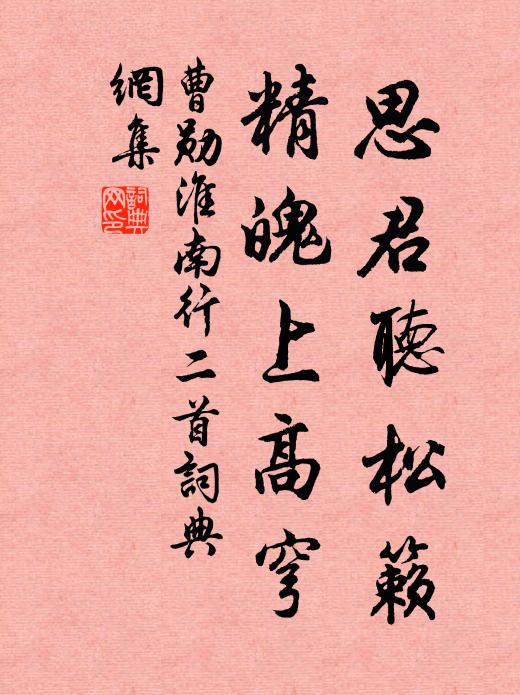 思君聽松籟
精魄上高穹
曹勛淮南行二首詞典
網集
詞典
网印